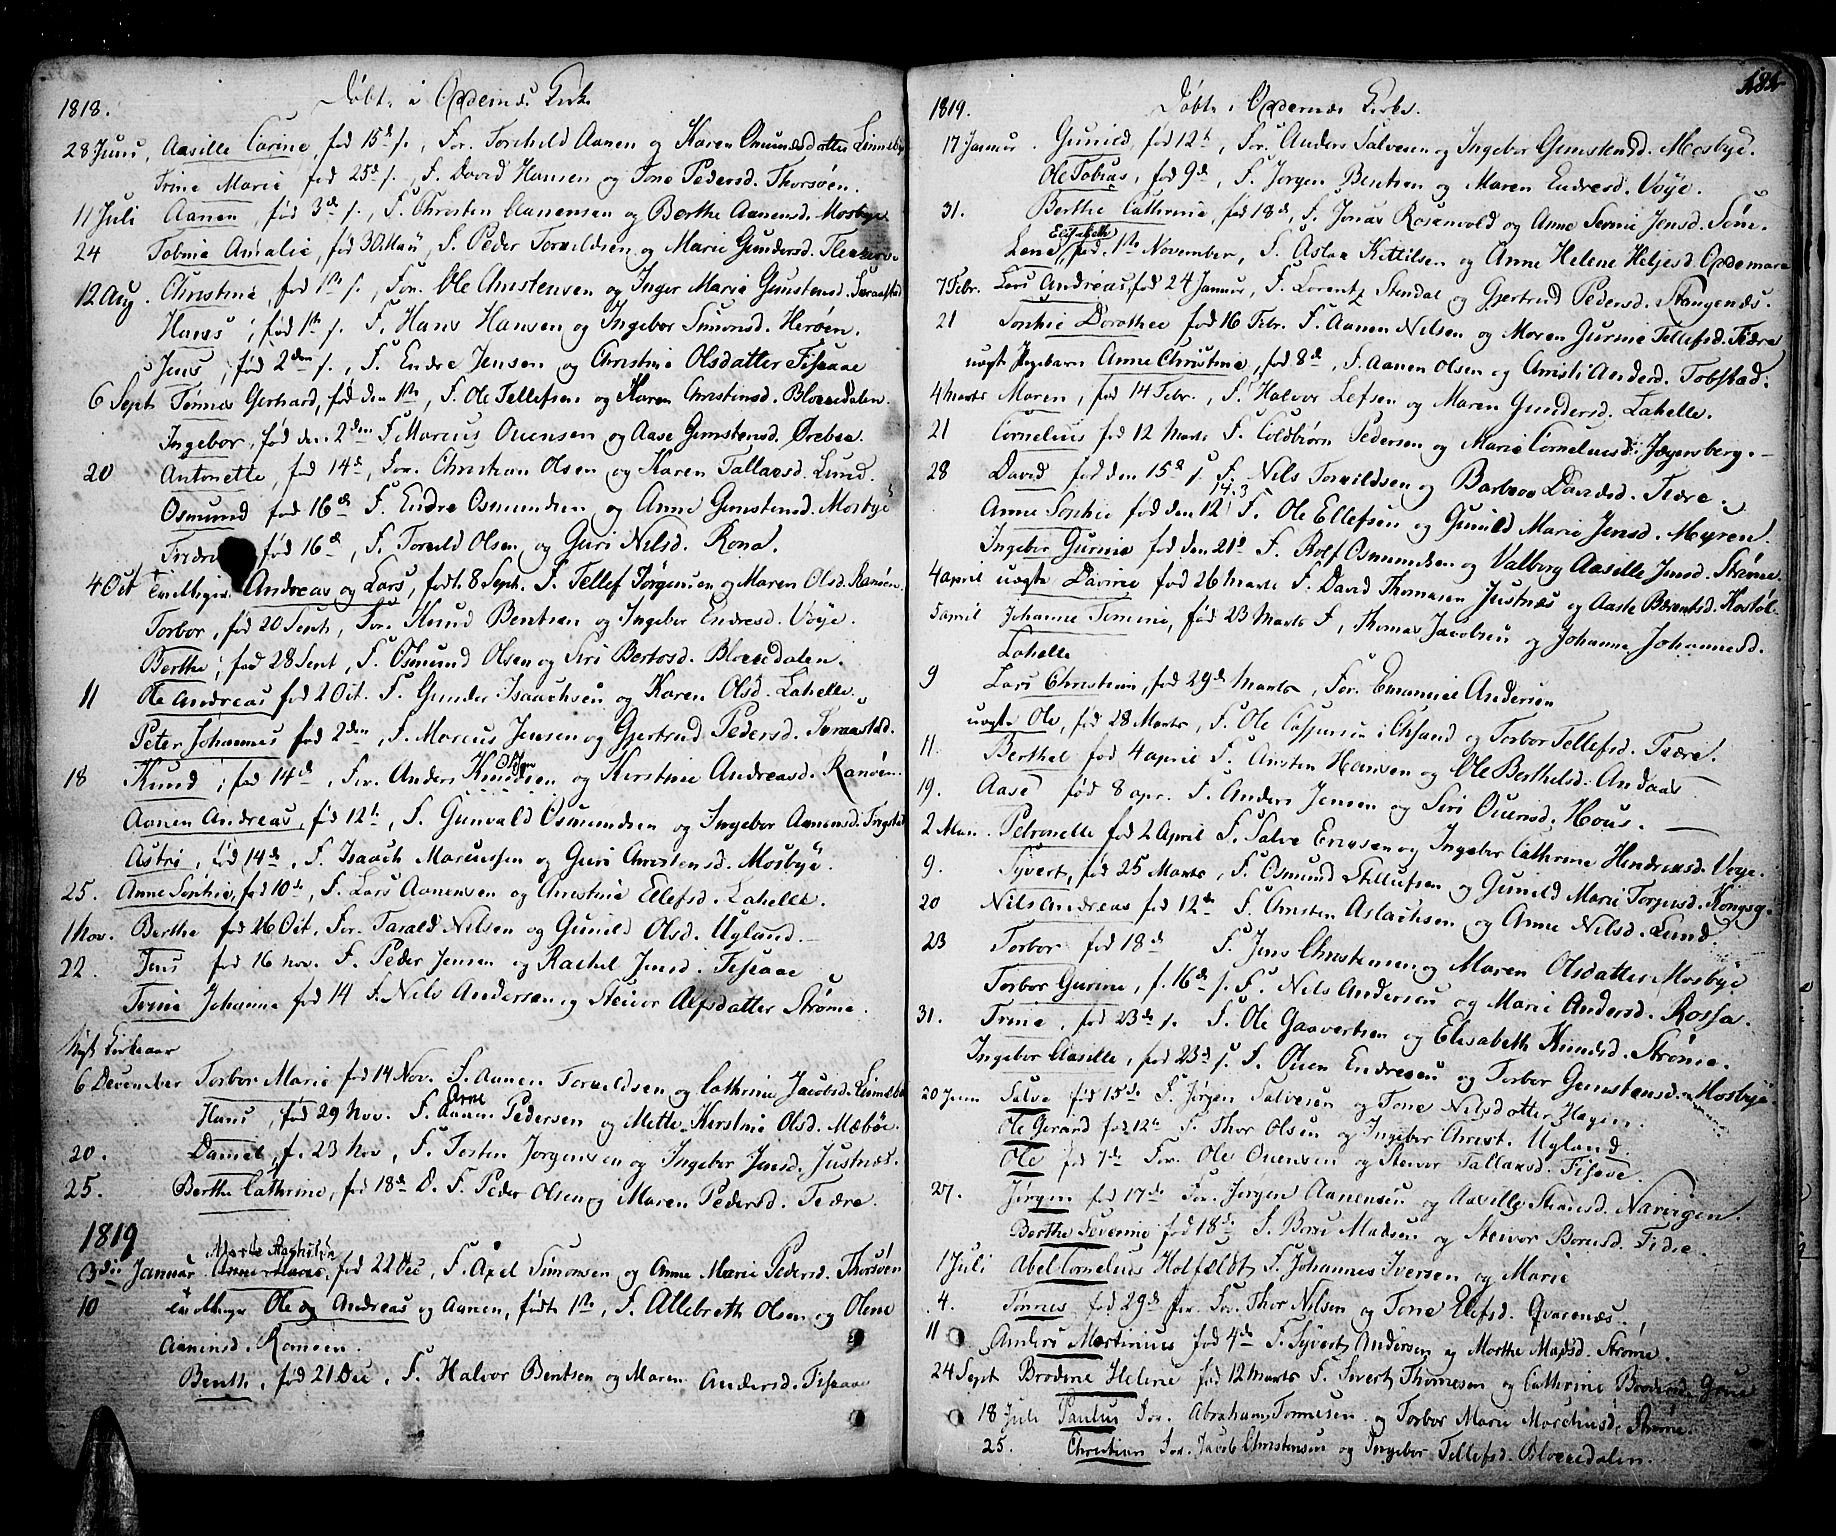 1818. Döbte i Oddernæs Kirke
28 Juni, Aasille Carine, fød 15de s., For. Torchild Aanen og Karen Omundsdotter
Trine Marie fød 25de s., F. David Hansen og Tone Pedersd. Thorsøen.
11 Juli Aanen, fød 3de s., F. Christen Aanensen og Berthe Aanensd. Mosbye
24 Tobine Amalie, fød 30 Maii, F. Peder Torkildsen og Marie Gundersd.
12 Aug. Christine, fød 1ste s., For. Ole Christensen og Inger Marie Gunstensd.
Hans, fød 1ste s., F. Hans Hansen og Ingebor Simonsd. Herøen.
Jens, fød 2den s., F. Endre Jensen og Christine Olsdatter Fiskaae
6 Sept Tønnes Gerhard, fød den 1ste, F. Ole Tellefsen og Karen Christensd. Blokkedalen.
Ingebor, fød den 2den F. Marcus Ouensen og Aase Gunstensd. Ørebek.
20 Antonette, fød 14de, For. Christian Olsen og Karen Tallaksd. Lund.
Osmund fød 16de F. Endre Osmundsen og Anne Gunstensd. Mosbye
fød 16de, F. Torkild Olsen og Guri Nilsd. Rona.
4 Oct Tvillinger Andreas og Lars, fødte 8 Sept. F. Tellef Jørgensen og Maren Olsd. Ranøen
Torbor, fød 20 Sept, For. Knud Bentsen og Ingebor Endresd. Voye.
Berthe, fød 28 Sept, F. Osmund Olsen og Siri Bertosd. Blokkedalen.
11 Ole Andreas fød 2 Oct. F. Gunder Isaachsen og Karen Olsd. Lahelle.
Peter Johannes fød 2den, F. Marcus Jensen og Gjertrud Pedersd.
18 Knud, fød 14de, For. Anders Knudsen Olsen og Kirstine Andreasd. Ranøen.
Aanen Andreas, fød 12te, F. Gunvald Osmundsen og Ingebor Aanensd.
Astri, fød 14de, F. Isaach Marcussen og Guri Christensd. Mosbye.
25. Anne Sophie, fød 10de, F. Lars Aanensen og Christine Ellefsd. Lahelle.
1 Nov. Berthe fød 26 Oct, For. Tarald Nilsen og Gunild Olsd. Ugland.
22. Jens fød 16 Nov. F. Peder Jensen og Rachel Jensd. Fiskaae
Trine Johanne fød 14 F. Nils Andersen og Steuor Alfsdatter Strøme.
Nyt Kirkeaar
6 December Torbor Marie fød 14 Nov. F. Aanen Torkildsen og Cathrine Jacobsd.
Hans, fød 29 Nov. F. Arne Aanen Pedersen og Mette Kirstine Olsd. Mæbøe.
20. Daniel, f. 23 Nov, F. Torsten Jørgensen og Ingebor Jensd. Justnæs.
25. Berthe Cathrine, fød 18de D. F. Peder Olsen og Maren Pedersd. Kiære.
1819
3die Januar fød 22 Dec, F. Axel Simonsen og Anne Marie Pedersd. Thorsøen
10 Tvillinger Ole og Andreas og Aanen, fødte 1ste, F. Allebreth Olsen og Olene
Aanensd. Ranøen.
Benth, fød 21 Dec, F. Halvor Bentsen og Maren Andersd. Fiskaae
184
1819. Døbte i Oddernæs Kirke.
17 Januar. Gunild, fød 12te, For. Anders Salvesen og Ingebor Gunstensd. Mosbye.
Ole Tobias, fød 9de, F. Jørgen Bentsen og Maren Endresd. Voye.
31. Berthe Cathrine, fød 18de, F. Jonas Rosenvold og Anne Serine Jensd.
Lene Elisabeth, fød 1ste November, F. Aslak Kittilsen og Anne Helene Heljesd. Oddernæs
7 Febr. Lars Andreas, fød 24 Januar, F. Lorentz Stendal og Gjertrud Pedersd. Stangenæs.
21 Sophie Dorothee fød 16 Febr. F. Aanen Nilsen og Maren Gurine Tellefsd. Kiære
uægte Pigebarn Anne Christine, fød 8de, F. Aanen Olsen og Christi Andersd. Tobstad.
4 Marts Maren, fød 14 Febr., F. Halvor Lefsen og Maren Gundersd. Lahelle.
21 Cornelius fød 12 Marts F. Coldbjørn Pedersen og Marie Corneliusd. Jægersberg.
28 David fød den 15de s. F. Nils Torkildsen og Barbroe Davidsd. Kiære.
14.3
Anne Sophie fød den 12 F. Ole Ellefsen og Gunild Marie Jensd. Myren.
Ingebor Gurine fød den 21d F. Rolf Osmundsen og Valborg Aasille Jensd. Strøme.
4 April uægte Davine fød 26 Marts F. David Thomasen Justnæs og Aaste Berentsd.
5 April Johanne Tomine, fød 23 Marts F. Thomas Jacobsen og Johanne Johannesd.
Lahelle
9 Lars Christian, fød 29de Marts, For. Emanuel Andersen
uægte Ole, fød 28 Marts, F. Ole Caspersen i Chsand og Torbor Tellefsd. Kiære.
11. Berthel fød 4 April F. Austen Hansen og Ole Berthelsd. Andaas
19. Aase fød 8 Apr. F. Anders Jensen og Siri Ouensd. Hous.
2 Mai. Petronelle fød 2 April F. Salve Ericsen og Ingebor Cathrine Hendricksd. Voye.
9. Syvert, fød 25 Marts, F. Osmund Stellufsen og Gunild Marie Torjusd. Kongsg.
20 Nils Andreas fød 12te F. Christen Aslachsen og Anne Nilsd. Lund.
23 Torbor fød 18de F. Jens Christensen og Maren Olsdatter Mosbye
Torbor Gurine, f. 16de s. F. Nils Andersen og Marie Andersd. Kossa.
31. Trine, fød 23de s. F. Ole Gaavertsen og Elisabeth Knudsd. Strøme.
Ingebor Aasille, fød 23d s. F. Ouen Endresen og Torbor Gunstensd. Mosbye.
20 Juni Salve fød 15de F. Jørgen Salvesen og Tone Nilsdotter Hagen.
Ole Gerard fød 12te F. Thor Olsen og Ingebor Christ. Ugland.
Ole fød 7de For. Ole Ouensen og Steivor Tallaksd. Fiskaae.
27. Jørgen fød 17de For. Jørgen Aanensen og Aasille
Berthe Severine fød 18de F. Børe Madsen og Steivor Børesd. Fidje.
1 Juli Abel Cornelius Holfeldt F. Johannes Iversen og Marie
4. Tønnes fød 29de For. Thor Nilsen og Tone Elefsd. Qvarenæs.
11 Anders Martinius fød 4de F. Syvert Andersen og Marthe Madsd. Strøme.
24 Sept Brodine Helene fød 12 Marts F. Sivert Thomesen og Cathrine Brodersd.
18 Juli Paulus For. Abraham Tønnesen og Torbor Marie Martinusd. Strøme.
25. Christian For. Jacob Christensen og Ingebor Tellefsd. Blokkedalen.